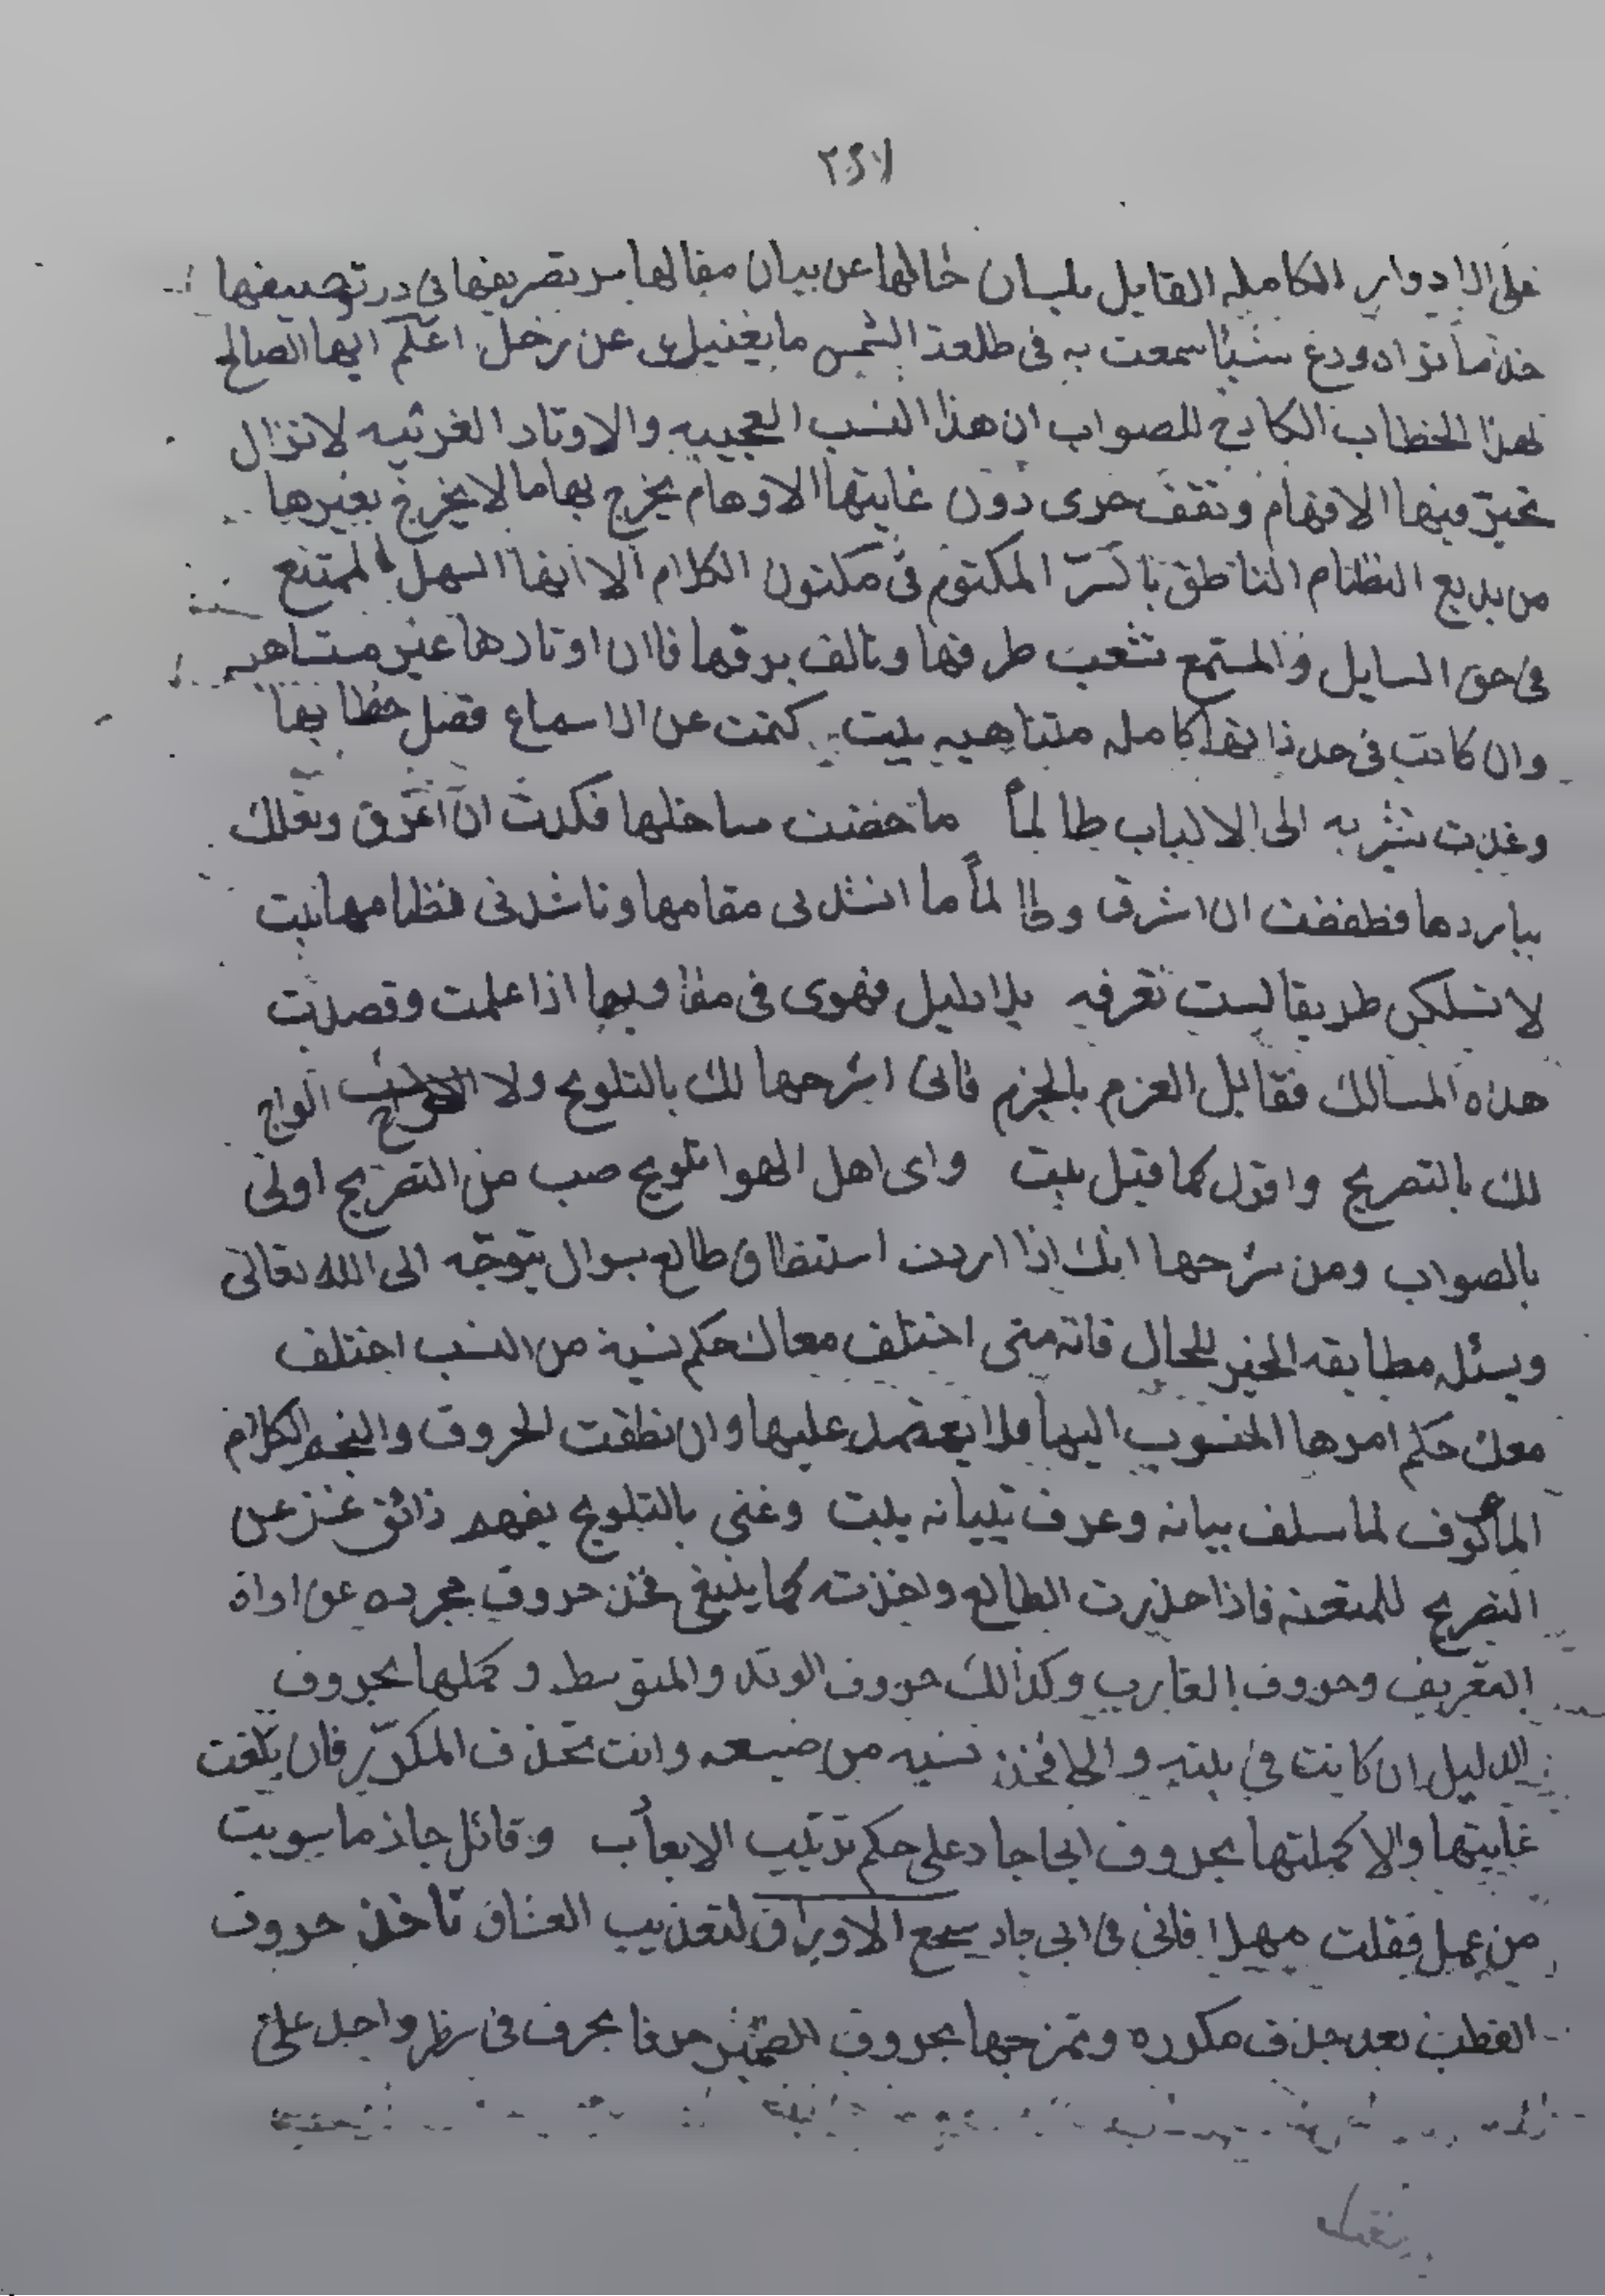 على الادوار الكامله القايل بلسان حالها عن بيان مقالها تصريفها في در توصيفها
خذ ما تراه ودع شيئا سمعت به في طلعة الشمس ما يغنيك عن زحل اعلم ايها الصالح
لهذا الخطاب الكادح للصواب ان هذا النسب العجيبه والاوتاد الغريبه لا تزال
تحيّر فيها الافهام وتقف دون غايتها الاوهام يخرج بها ما لا يخرج بغيرها
من بديع النظام الناطق بالسرّ المكتوم في مكنون الكلام الا انها السهل الممتنع
في حق السايل والمستمع تشعب طرقها وتالف برقها فان اوتارها غير متناهيه
وان كانت في حد ذاتها كامله متناهيه بيت كتمت عن الاسماع فضل خطابها
وغدت تشير به الى الالباب طالماً ما خضت ساحلها فكدت ان اغرق وتعلك
ببابردها فطفقت ان اشرق وطالماً ما انشدني مقامها وناشدني نظامها بيت
لا تسلكن طريقا لست تعرفه بلا دليل فتهوى في مهاويها اذا علمت وقصدت
هذه المسالك فقابل العزم بالجزم فاني اشرحها لك بالتلويح ولا الواح
لك بالتصريح واقول كما قيل بيت واى اهل الهوا تلويح صب من التصريح اولى
بالصواب ومن شرحها انك اذا اردت استنطاق طالع بسوال يتوجّه الى الله تعالى
ويسئله مطابقه الخبر للحال فانه متى اختلف معاك حكم نسبة من النسب اختلف
معك حكم امرها المنسوب اليها فلا يعتمد عليها وان نطقت الحروف والنجم الكلام
المألوف لما سلف بيانه وعرف تبيانه بيت وغنى بالتلويح يفهم ذائق غنى عن
التصريح للمتعنه فاذا حذرت الطالع واخذته كما ينبغي فخذ حروف مجرده عن اداة
التعريف وحروف الغارب وكذالك حروف الوتد والمتوسط وكملها بحروف
الدليل ان كانت في بيته والا فخذ نسبه من ضيعه وانت تحذف المكرّر فان بلغت
غايتها والا كملتها بحروف ابا جاد على حكم ترتيب الابعاب وقائل جاذ ما سويت
من عمل فقلت مهلا فاني في ابي جاد سجع الاوراق لتعذيب العشاق تاخذ حروف
القطب بعد حذف مكرره وتمزجها بحروف الضمير حرفا بحرف في سطر واحد على